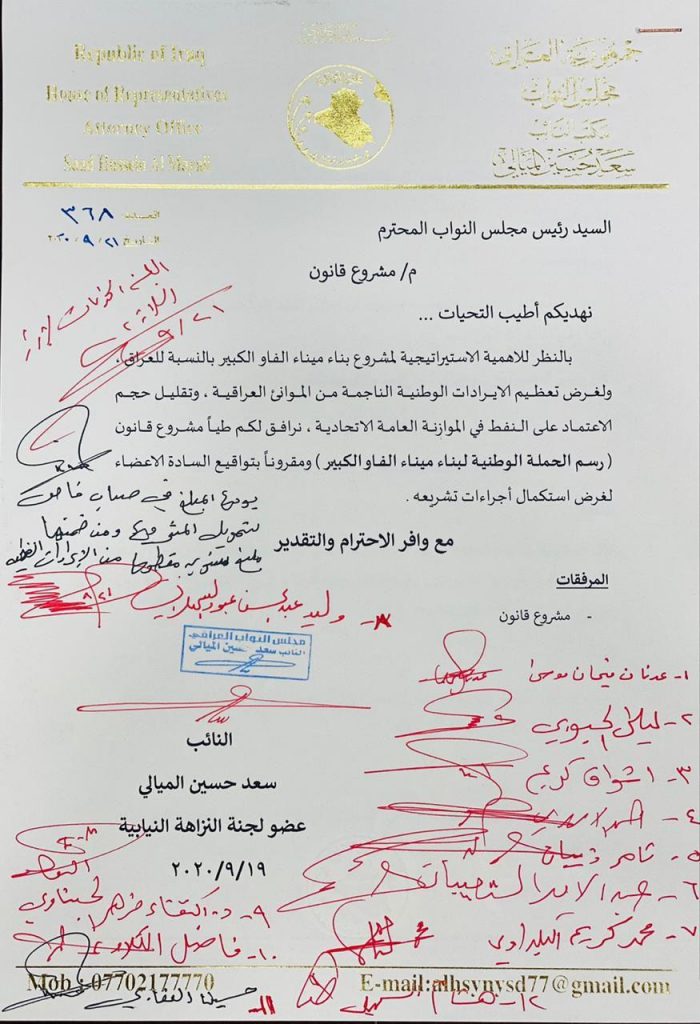 جمهورية العراق
مجلس النواب
مكتب النائب
سعد حسين الميالي
Republic of Iraq
House of Representatives
Attorney Office
Saad Hussein Al Mayali
العدد ٣٦٨
التاريخ ٢١ / ٩ / ٢٠٢٠
السيد رئيس مجلس النواب المحترم
م/ مشروع قانون
نهديكم أطيب التحيات ...
٩/٢١
بالنظر للاهمية الاستراتيجية لمشروع بناء ميناء الفاو الكبير بالنسبة للعراق،
ولغرض تعظيم الايرادات الوطنية الناجمة من الموانئ العراقية ، وتقليل حجم
الاعتماد على النفط في الموازنة العامة الاتحادية ، نرافق لكم طياً مشروع قانون
( رسم الحملة الوطنية لبناء ميناء الفاو الكبير ) ومقروناً بتواقيع السادة الاعضاء
لغرض استكمال أجراءات تشريعه .
يودع المبلغ في حساب خاص
لتمويل المشروع ومن ضمنها
مع وافر الاحترام والتقدير
المرفقات
- مشروع قانون
مجلس النواب العراقي
النائب سعد حسين الميالي
النائب
سعد حسين الميالي
عضو لجنة النزاهة النيابية
٢٠٢٠/٩/١٩
١- عدنان فيحان موسى
٢- ليلى
٣- اشواق كريم
٤-
٥- ثامر ذيبان
٦- عبد الامير
٧- محمد كريم البلداوي
٨- وليد عبد
٩- د. اكتفاء مزهر الحسناوي
١٠- فاضل
١١- حسين العقابي
١٢- هشام السهيل
Mob : 07702177770
E-mail:alhsynysd77@gmail.com